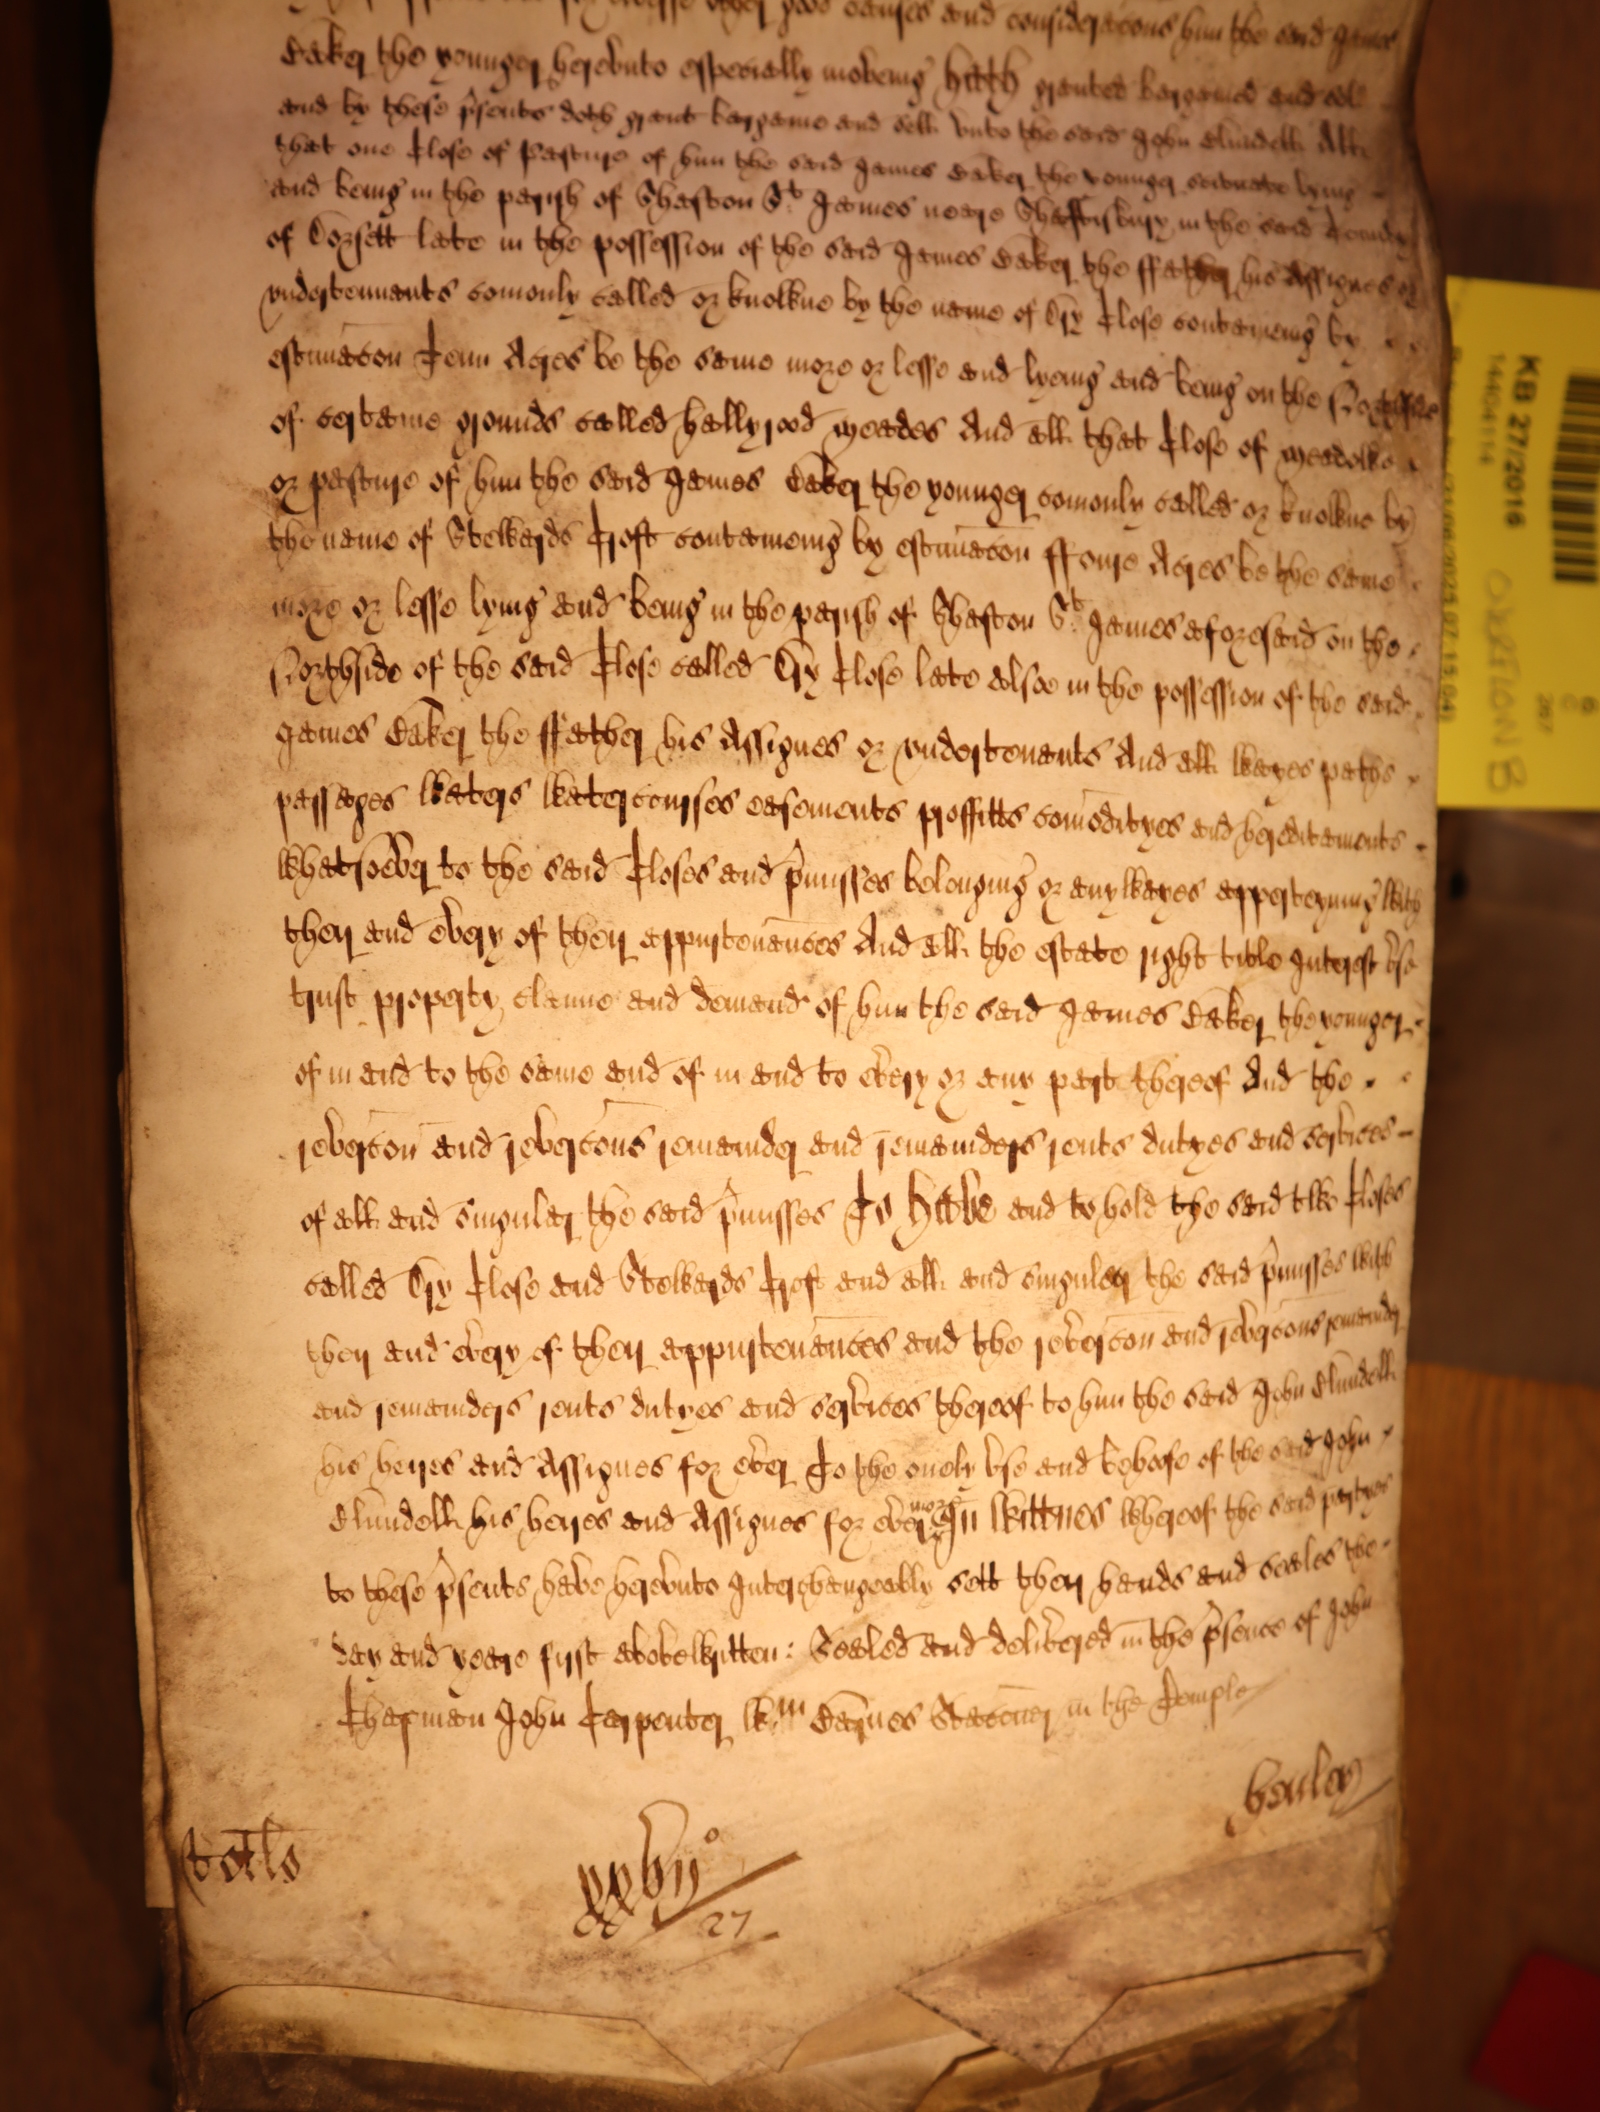 other good causes and consideracons him the said James
Baker the younger herevnto especially moveing hath granted bargained and sold
and by these p'sents doth grant bargaine and sell vnto the said John Blundell All
that one Close of Pasture of him the said James Baker the younger scituate lying
and being in the parish of Shaston St James neare Shaftisbury in the said County
of Dorsett late in the possession of the said James Baker the ffather his Assignes or
vndertennants comonly called or knowne by the name of Dry Close containeing by
estimacon Tenn Acres be the same more or lesse and lyeing and being on the Northside
of certaine grounds called hallyrood meades And all that Close of meadowe
or pasture of him the said James Baker the younger comonly called or knowne by
the name of Stewards Croft containeing by estimacon ffoure Acres be the same
more or lesse lying and being in the parish of Shaston St James aforesaid on the
Northside of the said Close called Dry Close late alsoe in the possession of the said
James Baker the ffather his Assignes or vndertenants And all wayes paths
passages waters watercourses easements proffitts comodityes and hereditaments
whatsoever to the said Closes and p'misses belonging or anywayes apperteyning with
their and every of their appurtenances And all the estate right title Interest vse
trust property claime and demand of him the said James Baker the younger
of in and to the same and of in and to every or any part thereof And the
revercon and revercons remainder and remainders rents dutyes and services
of all and singular the said p'misses To have and to hold the said two Closes
called Dry Close and Stewards Croft and all and singuler the said p'misses with
their and every of their appurtenances and the revercon and revercons remainder
and remainders rents dutyes and services thereof to him the said John Blundell
his heires and Assignes for ever To the onely vse and behoofe of the said John
Blundell his heires and Assignes for evermore In wittnes whereof the said partyes
to these p'sents have herevnto Interchangeably sett their hands and seales the
day and yeare first abovewritten: Sealed and delivered in the p'sence of John
Chapman John Carpenter Wm Barnes Stacioner in the Temple
henley
xxvijo
27
KB 27/2016
14404114